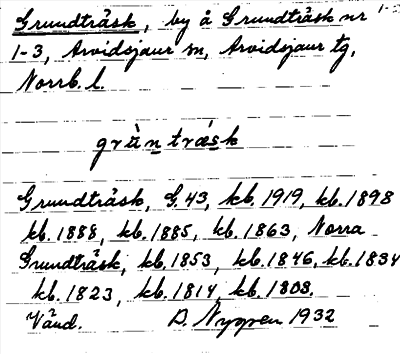 Grundträsk, by å Grundträsk nr 1-3
1-3, Arvidsjaur sn, Arvidsjaur tg,
Norrb. l.
grùntrǽsk
Grundträsk, G.43, kb. 1919, kb. 1898
kb. 1888, kb. 1885, kb. 1863, Norra
Grundträsk, kb. 1853, kb. 1846, kb. 1834
kb. 1823, kb. 1814, kb. 1808.
Vänd. D. Nygren 1932